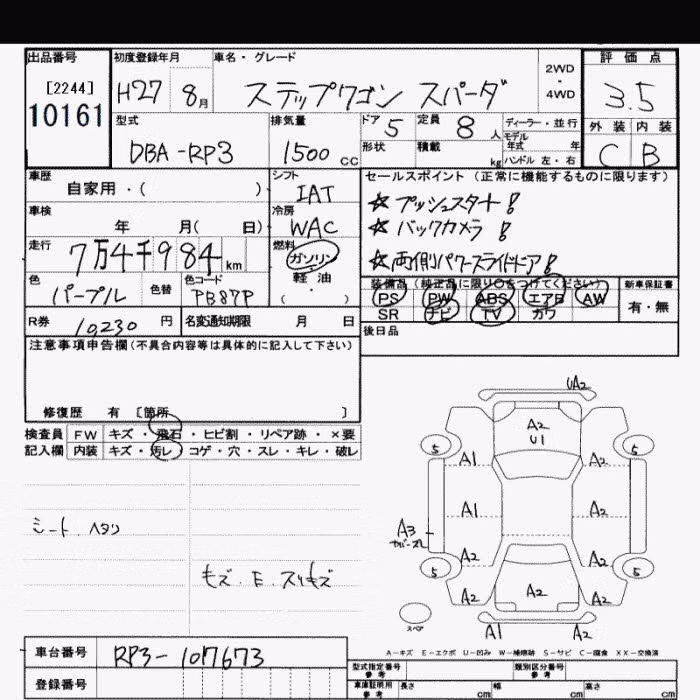 出品番号 初度登録年月 車名・グレード 評価点
[2244]
10161
H27 8月 ステップワゴン スパーダ 2WD・4WD 3.5
型式 排気量 ドア 5 定員 8人 ディーラー・並行 外装 内装
DBA-RP3 1500cc 形状 積載 kg モデル年式 年 ハンドル 左・右 C B
車歴 自家用・( ) シフト IAT セールスポイント(正常に機能するものに限ります)
車検 年 月( 日) 冷房 WAC ☆プッシュスタート!
☆バックカメラ!
走行 7万4千984km 燃料 ガソリン・軽油・( ) ☆両側パワースライドドア!
色 パープル 色替 色コード PB87P 装備品(純正品に限り○をつけてください) 新車保証書
PS PW ABS エアB AW 有・無
R券 10,230円 名変通知期限 月 日 SR ナビ TV カワ
注意事項申告欄(不具合内容等は具体的に記入して下さい) 後日品
修復歴 有 〔箇所 〕
検査員 FW キズ・飛石・ヒビ割・リペア跡・×要
記入欄 内装 キズ・汚レ・コゲ・穴・スレ・キレ・破レ
シート ヘタリ
キズ.E.スリキズ
UA2
A2
U1
5 5
A1 A2
A1 A2
A3
A2 A2
5 5
A2 A2 A2
スペア A1 A2
A-キズ E-エクボ U-凹み W-補修跡 S-サビ C-腐食 XX-交換済
車台番号 RP3-1017673
登録番号
型式指定番号 参考 類別区分番号 参考
車庫証明用 参考 長さ cm 幅 cm 高さ cm